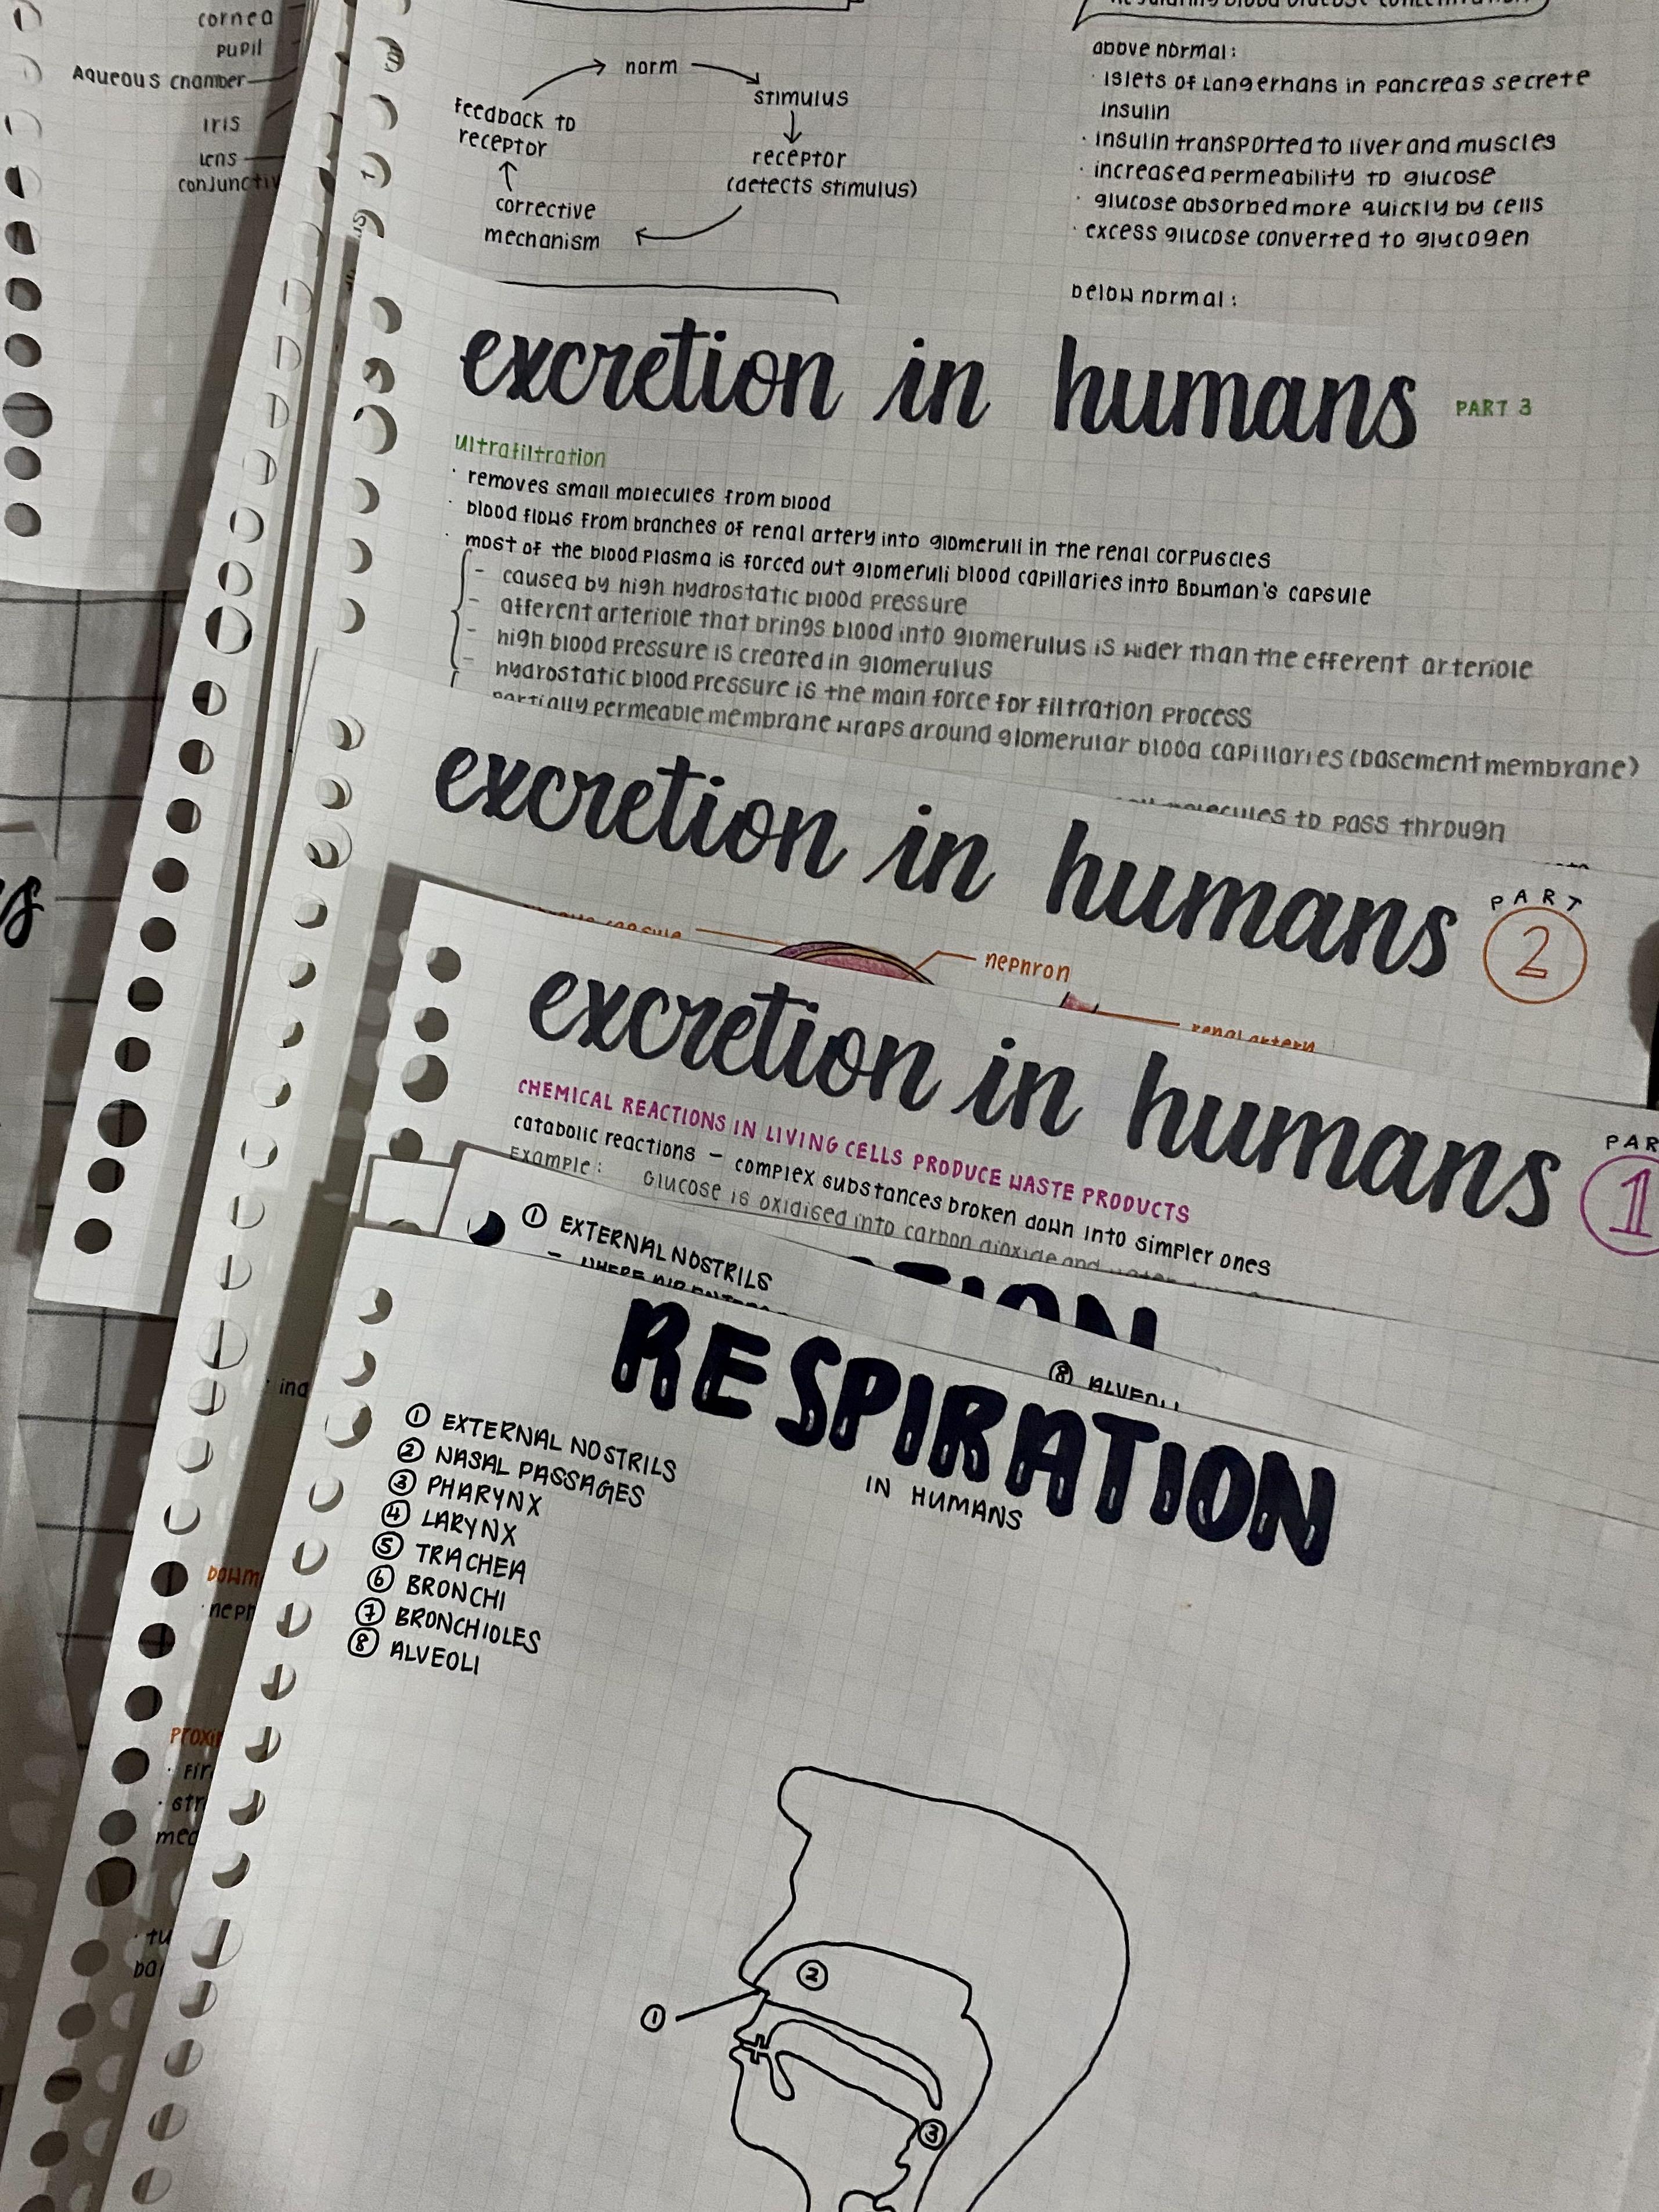 cornea
pupil
Aqueous chamber
iris
lens
norm
stimulus
receptor
(detects stimulus)
corrective
mechanism
feedback to
receptor
above normal:
· islets of Langerhans in pancreas secrete
insulin
· insulin transported to liver and muscles
· increased permeability to glucose
· glucose absorbed more quickly by cells
· excess glucose converted to glycogen
below normal:
excretion in humans PART 3
Ultrafiltration
· removes small molecules from blood
· blood flows from branches of renal artery into glomeruli in the renal corpuscles
· most of the blood plasma is forced out glomeruli blood capillaries into Bowman's capsule
- caused by high hydrostatic blood pressure
- afferent arteriole that brings blood into glomerulus is wider than the efferent arteriole
- high blood pressure is created in glomerulus
- hydrostatic blood pressure is the main force for filtration process
partially permeable membrane wraps around glomerular blood capillaries (basement membrane)
molecules to pass through
excretion in humans PART 2
capsule
nephron
renal artery
excretion in humans 1
CHEMICAL REACTIONS IN LIVING CELLS PRODUCE WASTE PRODUCTS
catabolic reactions - complex substances broken down into simpler ones
Example: Glucose is oxidised into carbon dioxide and water
① EXTERNAL NOSTRILS
- WHERE AIR ENTERS
⑧ ALVEOLI
RESPIRATION
IN HUMANS
① EXTERNAL NOSTRILS
② NASAL PASSAGES
③ PHARYNX
④ LARYNX
⑤ TRACHEA
⑥ BRONCHI
⑦ BRONCHIOLES
⑧ ALVEOLI
②
①
③